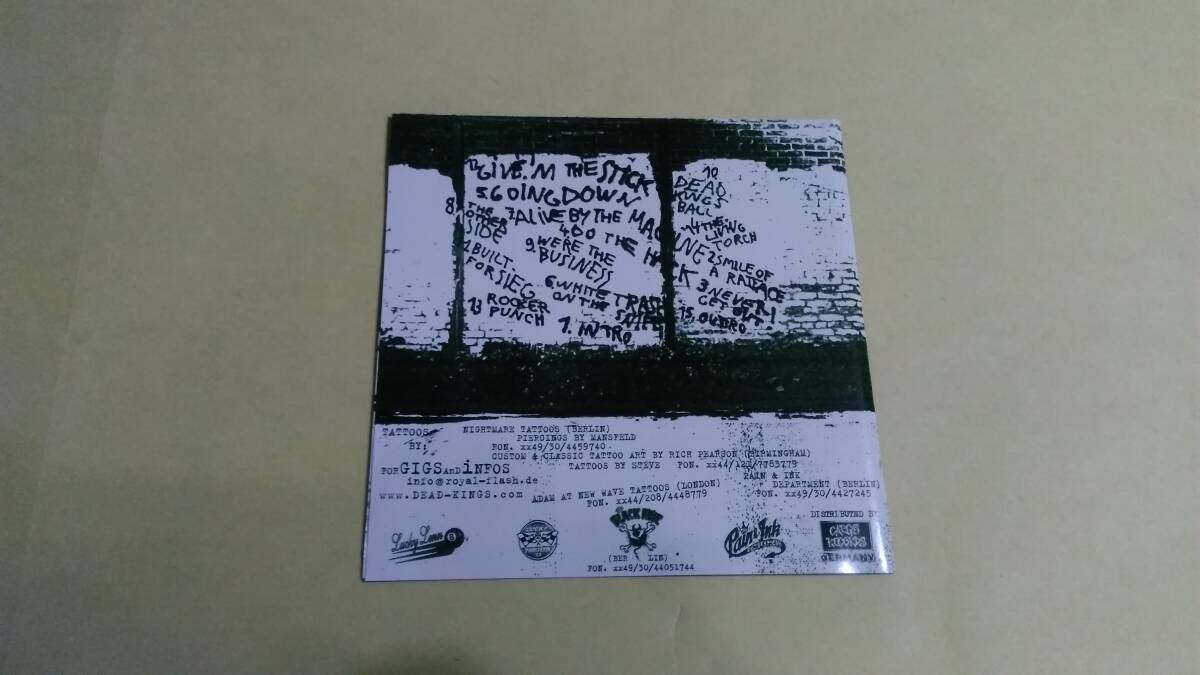 12 GIVE.'M THE STICK
5. GOING DOWN
8. THE OTHER SIDE
7. ALIVE BY THE MACHINE
4. DO THE HACK
9. WERE THE BUSINESS
BUILT. FOR SIEG
6. WHITE TRASH ON THE
13 ROCKER PUNCH
1. INTRO
10 DEAD KINGS BALL
THE LIVING TORCH
2 SMILE OF A RATFACE
3 NEVER! GET OUT!
15. OUTRO
TATTOOS BY:
NIGHTMARE TATTOOS (BERLIN)
PIERCINGS BY MANSFELD
FON. xx49/30/4459740
CUSTOM & CLASSIC TATTOO ART BY RICH PEARSON (BIRMINGHAM)
TATTOOS BY STEVE FON. xx44/121/7783779
FOR GIGS AND INFOS
info@royal-flash.de
www.DEAD-KINGS.com
ADAM AT NEW WAVE TATTOOS (LONDON)
FON. xx44/208/4448779
PAIN & INK
DEPARTMENT (BERLIN)
FON. xx49/30/4427245
DISTRIBUTED BY
CARGO RECORDS
GERMANY
Lucky Lenn 8
(BERLIN)
FON. xx49/30/44051744
Pain & Ink